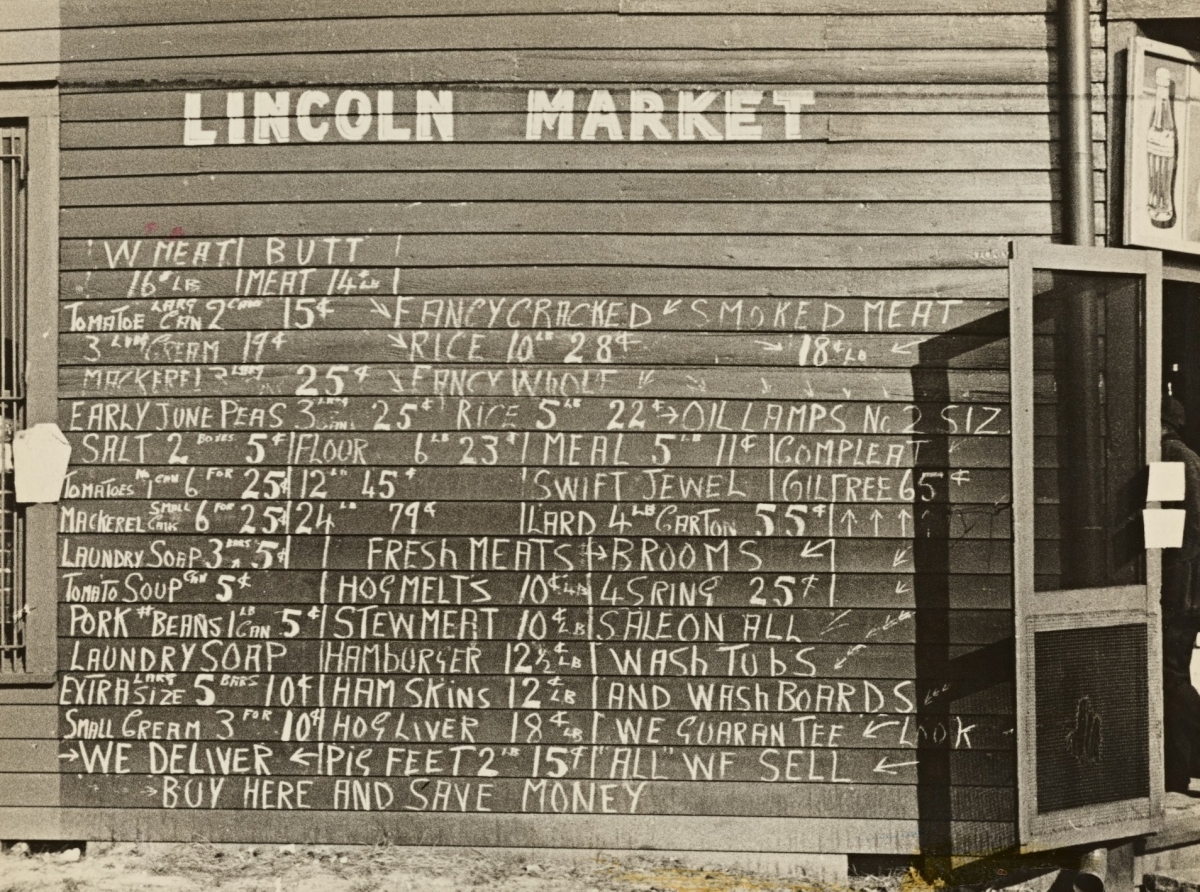 LINCOLN MARKET
W MEAT BUTT
16¢ LB MEAT 14¢ LB
TOMATOE LARG CAN 2 CANS 15¢ FANCY CRACKED SMOKED MEAT
3 CREAM 19¢ RICE 10 LB 28¢ 18¢ LB
MACKEREL 25¢ FANCY WHOLE
EARLY JUNE PEAS 3 CAN 25¢ RICE 5 LB 22¢ → OIL LAMPS No 2 SIZ
SALT 2 BOXES 5¢ FLOUR 6 LB 23¢ MEAL 5 LB 11¢ COMPLEAT
TOMATOES No 1 CAN 6 FOR 25¢ 12 LB 45¢ SWIFT JEWEL GILTREE 65¢
MACKEREL SMALL CAN 6 FOR 25¢ 24 LB 79¢ LARD 4 LB CARTON 55¢ ↑ ↑ ↑ ↑
LAUNDRY SOAP 3 BARS 5¢ FRESH MEATS → BROOMS ↙
TOMATO SOUP CAN 5¢ HOG MELTS 10¢ LB 4 SRING 25¢
PORK # BEANS 1 LB CAN 5¢ STEW MEAT 10¢ LB SALE ON ALL
LAUNDRY SOAP HAMBURGER 12½¢ LB WASH TUBS
EXTRA LARG SIZE 5 BARS 10¢ HAM SKINS 12¢ LB AND WASH BOARDS
SMALL CREAM 3 FOR 10¢ HOG LIVER 18¢ LB WE GUARANTEE ← LOOK
→ WE DELIVER ← PIG FEET 2 LB 15¢ "ALL" WE SELL ←
→ BUY HERE AND SAVE MONEY